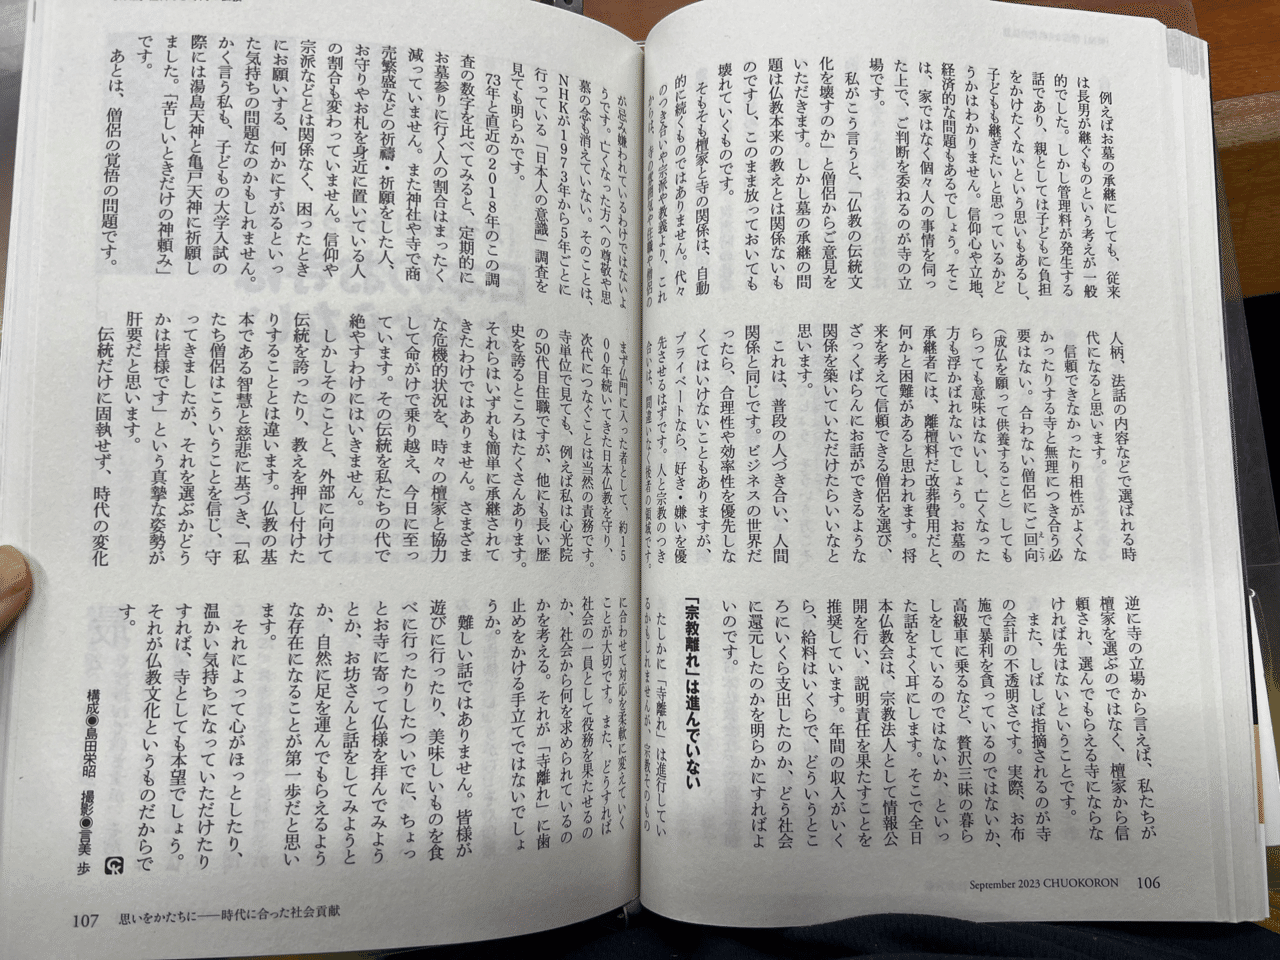 例えばお墓の承継にしても、従来
は長男が継ぐものという考えが一般
的でした。しかし管理料が発生する
話であり、親としては子どもに負担
をかけたくないという思いもあるし、
子どもも継ぎたいと思っているかど
うかはわかりません。信仰心や立地、
経済的な問題もあるでしょう。そこ
は、家ではなく個々人の事情を伺っ
た上で、ご判断を委ねるのが寺の立
場です。
私がこう言うと、「仏教の伝統文
化を壊すのか」と僧侶からご意見を
いただきます。しかし墓の承継の問
題は仏教本来の教えとは関係ないも
のですし、このまま放っておいても
壊れていくものです。
そもそも檀家と寺の関係は、自動
的に続くものではありません。代々
のつき合いや宗派や教義より、これ
からは、寺の雰囲気や住職や僧侶の
人柄、法話の内容などで選ばれる時
代になると思います。
信頼できなかったり相性がよくな
かったりする寺と無理につき合う必
要はない。合わない僧侶にご回向
えこう
(成仏を願って供養すること)しても
らっても意味はないし、亡くなった
方も浮かばれないでしょう。お墓の
承継者には、離檀料だ改葬費用だと、
何かと困難があると思われます。将
来を考えて信頼できる僧侶を選び、
ざっくばらんにお話ができるような
関係を築いていただけたらいいなと
思います。
これは、普段の人づき合い、人間
関係と同じです。ビジネスの世界だ
ったら、合理性や効率性を優先しな
くてはいけないこともありますが、
プライベートなら、好き・嫌いを優
先させるはずです。人と宗教のつき
合いは、間違いなく後者の領域です。
逆に寺の立場から言えば、私たちが
檀家を選ぶのではなく、檀家から信
頼され、選んでもらえる寺にならな
ければ先はないということです。
また、しばしば指摘されるのが寺
の会計の不透明さです。実際、お布
施で暴利を貪っているのではないか、
高級車に乗るなど、贅沢三昧の暮ら
しをしているのではないか、といっ
た話をよく耳にします。そこで全日
本仏教会は、宗教法人として情報公
開を行い、説明責任を果たすことを
推奨しています。年間の収入がいく
ら、給料はいくらで、どういうとこ
ろにいくら支出したのか、どう社会
に還元したのかを明らかにすればよ
いのです。
「宗教離れ」は進んでいない
たしかに「寺離れ」は進行してい
るかもしれませんが、宗教そのもの
September 2023 CHUOKORON 106
が忌み嫌われているわけではないよ
うです。亡くなった方への尊敬や思
慕の念も消えていない。そのことは、
NHKが1973年から5年ごとに
行っている「日本人の意識」調査を
見ても明らかです。
73年と直近の2018年のこの調
査の数字を比べてみると、定期的に
お墓参りに行く人の割合はまったく
減っていません。また神社や寺で商
売繁盛などの祈禱・祈願をした人、
お守りやお札を身近に置いている人
の割合も変わっていません。信仰や
宗派などとは関係なく、困ったとき
にお願いする、何かにすがるといっ
た気持ちの問題なのかもしれません。
かく言う私も、子どもの大学入試の
際には湯島天神と亀戸天神に祈願し
ました。「苦しいときだけの神頼み」
です。
あとは、僧侶の覚悟の問題です。
まず仏門に入った者として、約15
00年続いてきた日本仏教を守り、
次代につなぐことは当然の責務です。
寺単位で見ても、例えば私は心光院
の50代目住職ですが、他にも長い歴
史を誇るところはたくさんあります。
それらはいずれも簡単に承継されて
きたわけではありません。さまざま
な危機的状況を、時々の檀家と協力
して命がけで乗り越え、今日に至っ
ています。その伝統を私たちの代で
絶やすわけにはいきません。
しかしそのことと、外部に向けて
伝統を誇ったり、教えを押し付けた
りすることとは違います。仏教の基
本である智慧と慈悲に基づき、「私
たち僧侶はこういうことを信じ、守
ってきましたが、それを選ぶかどう
かは皆様です」という真摯な姿勢が
肝要だと思います。
伝統だけに固執せず、時代の変化
に合わせて対応を柔軟に変えていく
ことが大切です。また、どうすれば
社会の一員として役務を果たせるの
か、社会から何を求められているの
かを考える。それが「寺離れ」に歯
止めをかける手立てではないでしょ
うか。
難しい話ではありません。皆様が
遊びに行ったり、美味しいものを食
べに行ったりしたついでに、ちょっ
とお寺に寄って仏様を拝んでみよう
とか、お坊さんと話をしてみようと
か、自然に足を運んでもらえるよう
な存在になることが第一歩だと思い
ます。
それによって心がほっとしたり、
温かい気持ちになっていただけたり
すれば、寺としても本望でしょう。
それが仏教文化というものだからで
す。
構成●島田栄昭 撮影●言美 歩
107 思いをかたちに——時代に合った社会貢献